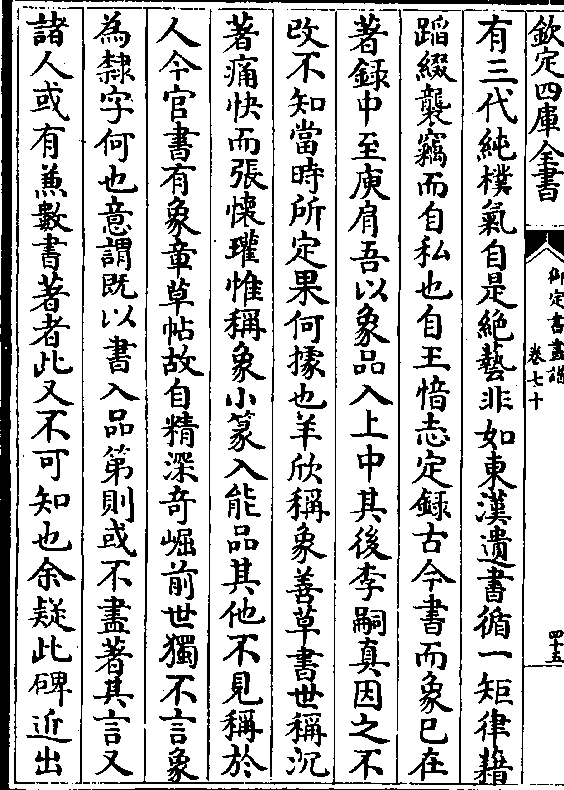 欽定四庫全書
御定書畫譜
卷七十
四十五
有三代純樸氣自是絶藝非如東漢遺書循一矩律藉
蹈綴襲竊而自私也自王愔志定録古今書而象已在
著録中至庾肩吾以象品入上中其後李嗣真因之不
改不知當時所定果何據也羊欣稱象善草書世稱沉
著痛快而張懐瓘惟稱象小篆入能品其他不見稱於
人今官書有象章草帖故自精深奇崛前世獨不言象
為隸字何也意謂既以書入品第則或不盡著其言又
諸人或有兼數書著者此又不可知也余疑此碑近出